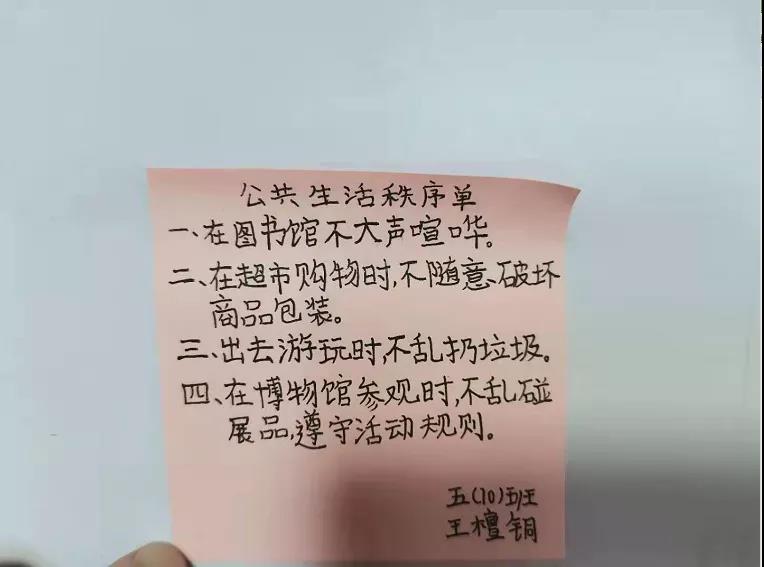 公共生活秩序单
一、在图书馆不大声喧哗。
二、在超市购物时,不随意破坏
商品包装。
三、出去游玩时,不乱扔垃圾。
四、在博物馆参观时,不乱碰
展品,遵守活动规则。
五(10)班
王檀铜